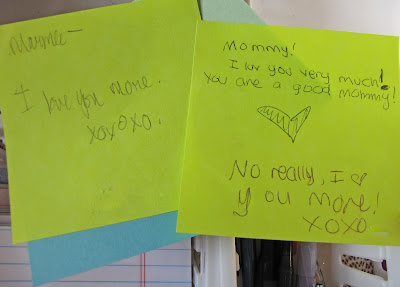 Marmee-
I love you more.
xoxoxo.
Mommy!
I luv you very much!
You are a good mommy!
No really, I ♡
you more!
xoxo